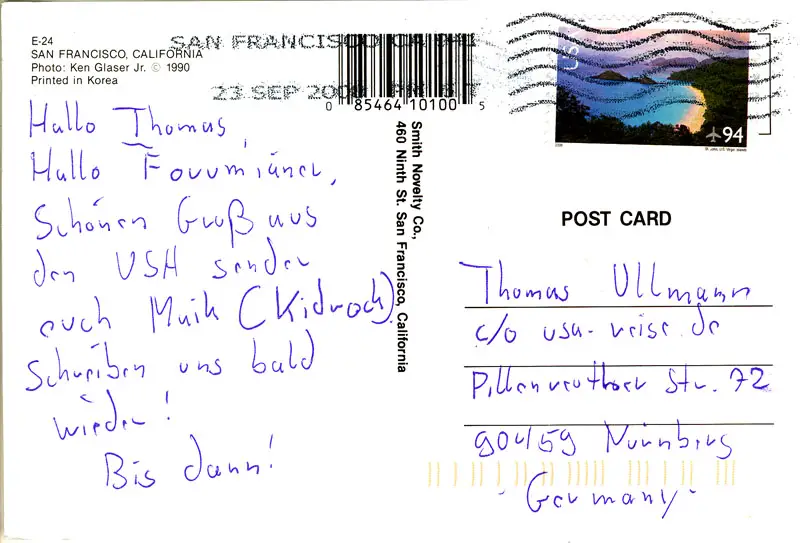 E-24
SAN FRANCISCO, CALIFORNIA
Photo: Ken Glaser Jr. © 1990
Printed in Korea
SAN FRANCISCO CA
23 SEP
0 85464 10100 5
USA
94
Hallo Thomas,
Hallo Forumianer,
Schönen Gruß aus
den USA sendet
euch Maik (Kidrock).
Schreiben uns bald
wieder!
Bis dann!
Smith Novelty Co.,
460 Ninth St. San Francisco, California
POST CARD
Thomas Ullmann
c/o usa-reise.de
Pillenreuther Str. 72
90459 Nürnberg
- Germany -